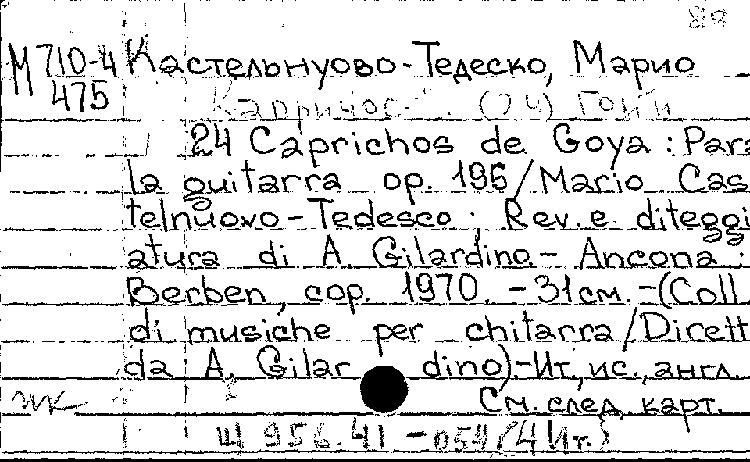 М 710-4 Кастельнуово-Тедеско, Марио
475
Каприччос (24) Гойи
24 Caprichos de Goya : Para
la guitarra op. 195 / Mario Cas
telnuovo-Tedesco ; Rev. e diteggi
atura di A. Gilardino.- Ancona :
Berben, cop. 1970. -31см.-(Coll.
di musiche per chitarra / Dirett
da A. Gilar dino)-Ит., ис., англ.
См. след. карт.
Щ 956.41 -054 (4 Ит.)